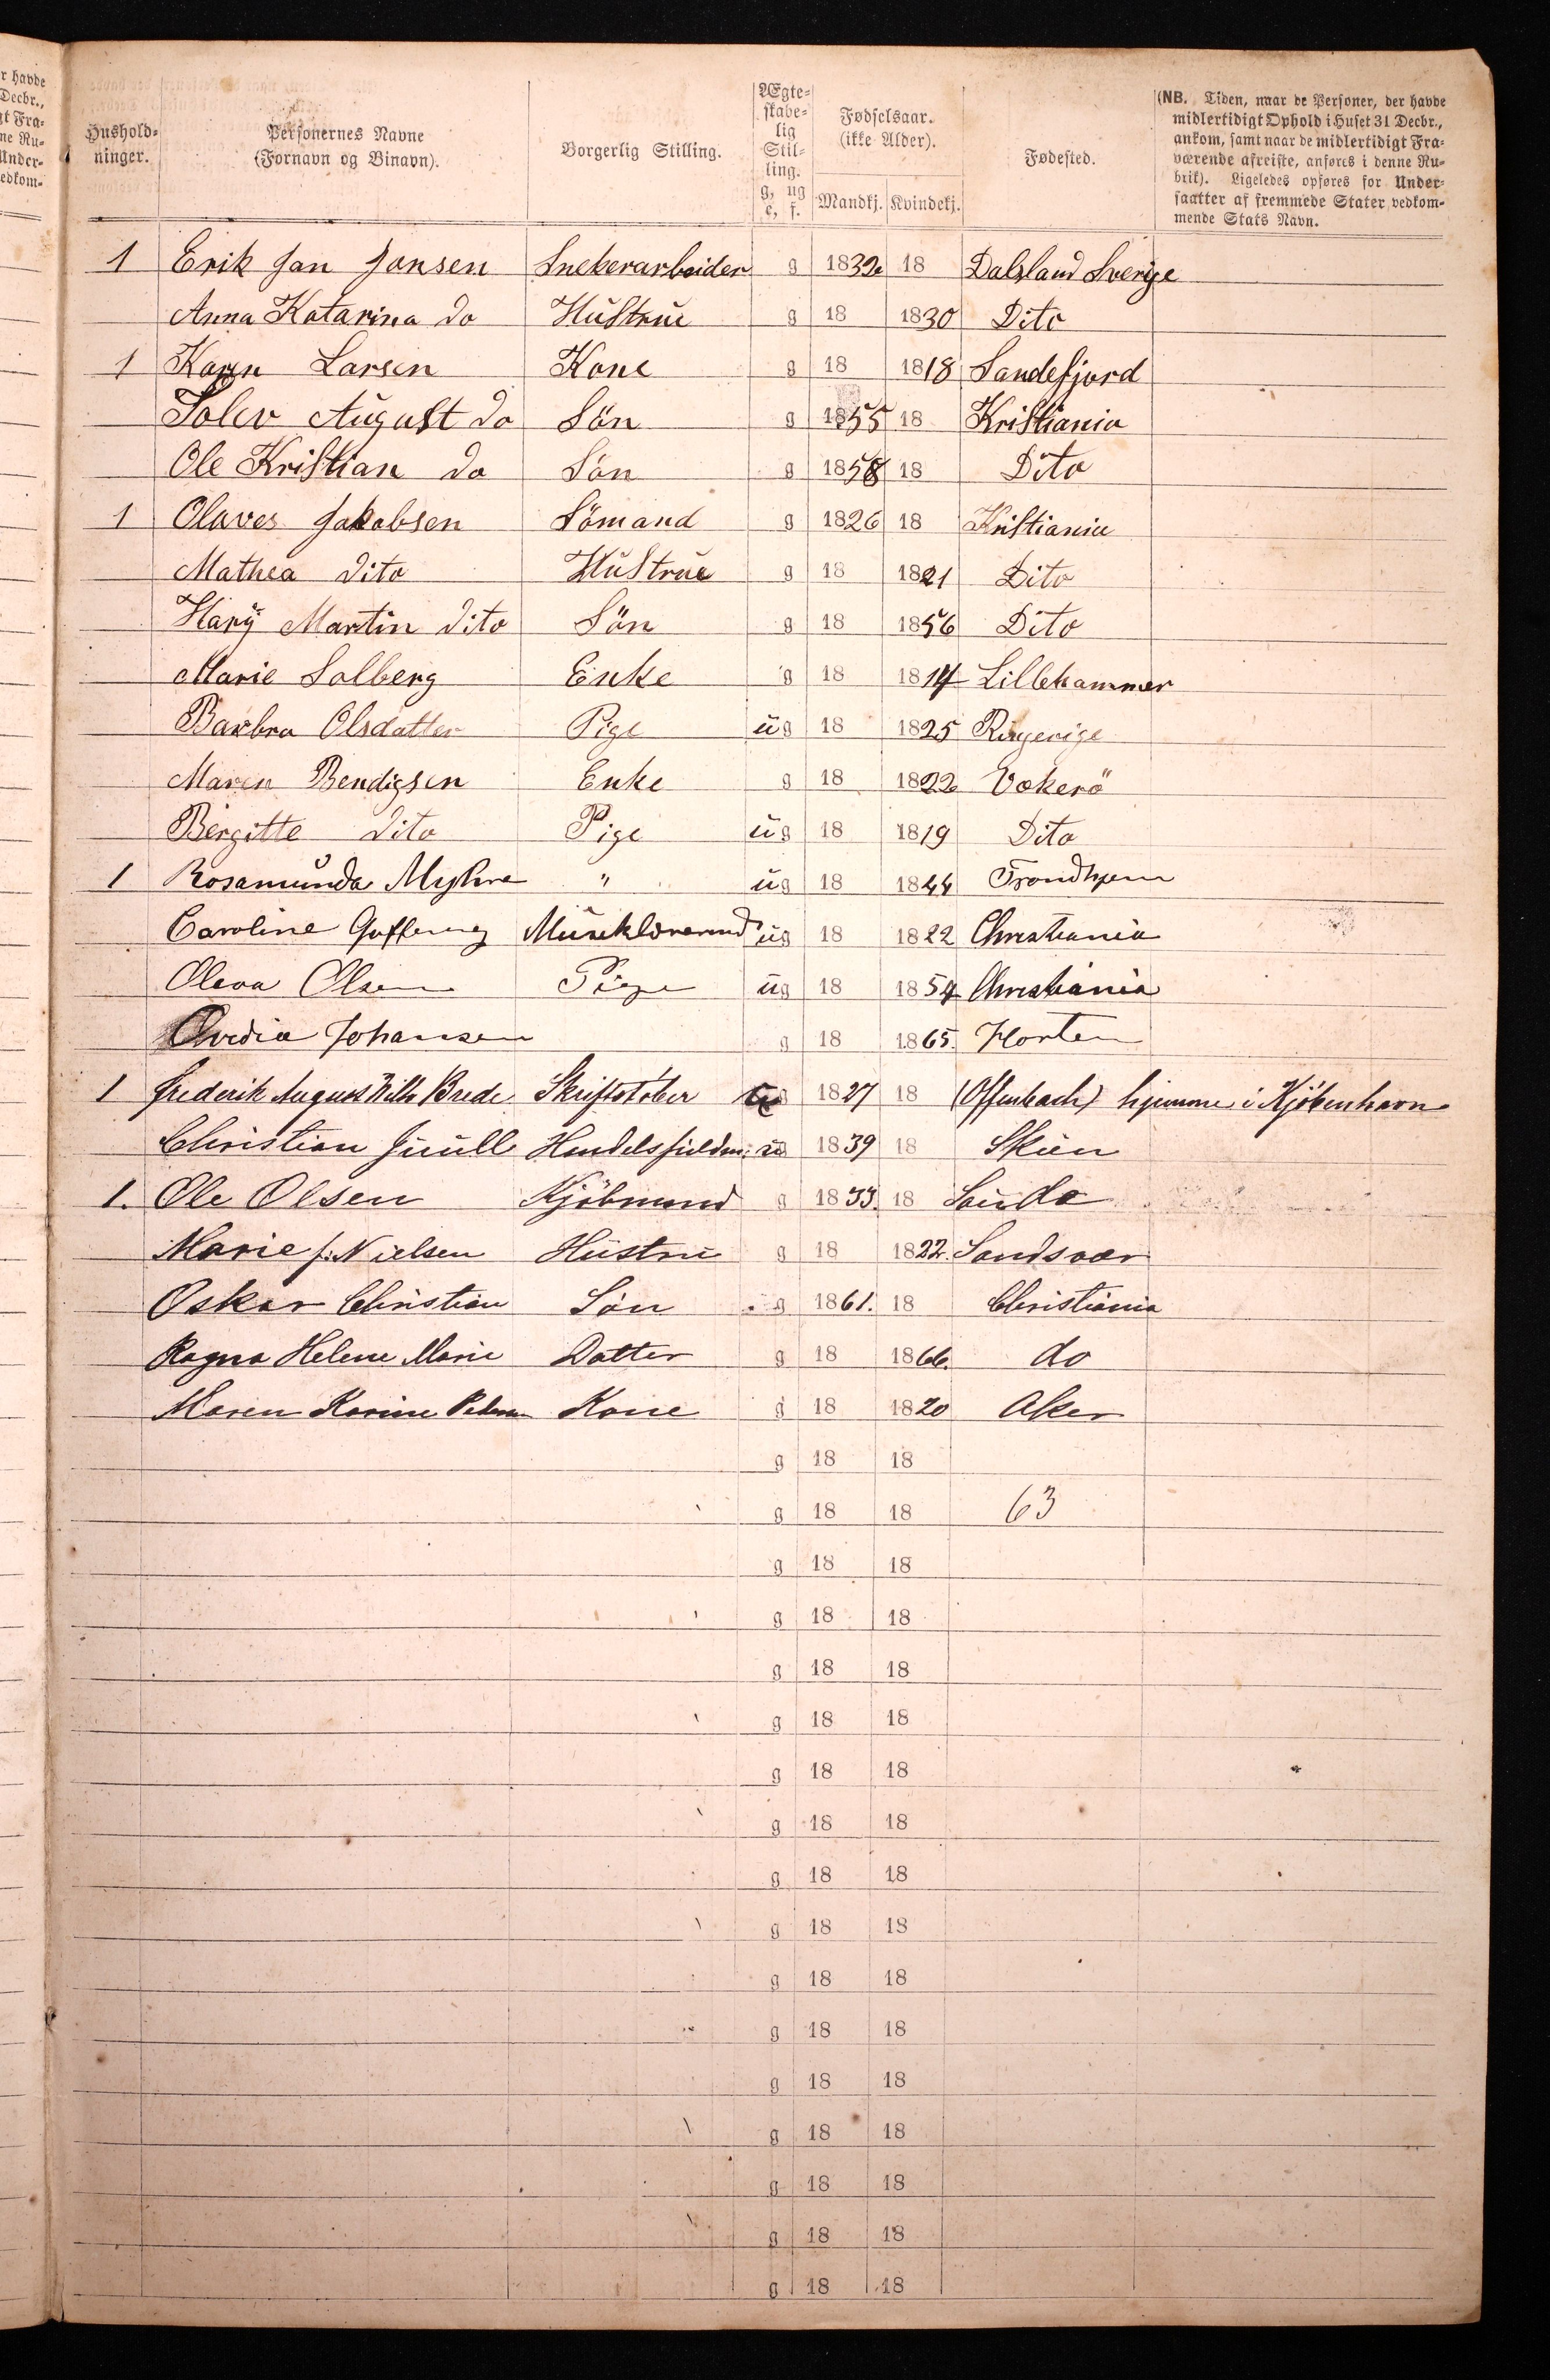 r havde
Decbr.,
gt Fra-
ne Ru-
Under-
edkom-
Hushold-
ninger.
Personernes Navne
(Fornavn og Binavn).
Borgerlig Stilling.
Ægte-
skabe-
lig
Stil-
ling.
g, ug
e, f.
Fødselsaar.
(ikke Alder).
Mandkj. Kvindekj.
Fødested.
(NB. Tiden, naar de Personer, der havde
midlertidigt Ophold i Huset 31 Decbr.,
ankom, samt naar de midlertidigt Fra-
værende afreiste, anføres i denne Ru-
brik). Ligeledes opføres for Under-
saatter af fremmede Stater vedkom-
mende Stats Navn.
1 Erik Jan Jonsen Snekerarbeider g 1832 18 Dalsland Sverige
Anna Katarina do Hustrue g 18 1830 Dito
1 Karen Larsen Kone g 18 1818 Sandefjord
August do Sön g 1855 18 Kristiania
Ole Kristian do Sön g 1858 18 Dito
1 Olaves Jakobsen Sömand g 1826 18 Kristiania
Mathea dito Hustrue g 18 1821 Dito
Hary Martin dito Sön g 18 1856 Dito
Marie Solberg Enke g 18 1814 Lillehammer
Barbra Olsdatter Pige ug 18 1825 Ringerige
Maren Bendigsen Enke g 18 1822 Vokerö
Bergitte dito Pige ug 18 1819 Dito
1 Rosamunda Myhre " ug 18 1844 Trondhjem
Caroline ug 18 1822 Christiania
Oleva Olsen Pige ug 18 1854 Christiania
Ovedia Johansen g 18 1865. Horten
1 Frederik August Wilh Brede 1827 18 (Offenbach) hjemme i Kjöbenhavn
Christian Juull ug 1839 18 Skien
1. Ole Olsen Kjöbmand g 1833. 18 Saude
Marie f: Nielsen Hustru g 18 1822. Sandsvær
Oskar Christian Sön g 1861. 18 Christiania
Ragna Helene Marie Datter g 18 1866. do
Maren Karine Peters Kone g 18 1820 Aker
g 18 18
g 18 18 63
g 18 18
g 18 18
g 18 18
g 18 18
g 18 18
g 18 18
g 18 18
g 18 18
g 18 18
g 18 18
g 18 18
g 18 18
g 18 18
g 18 18
g 18 18